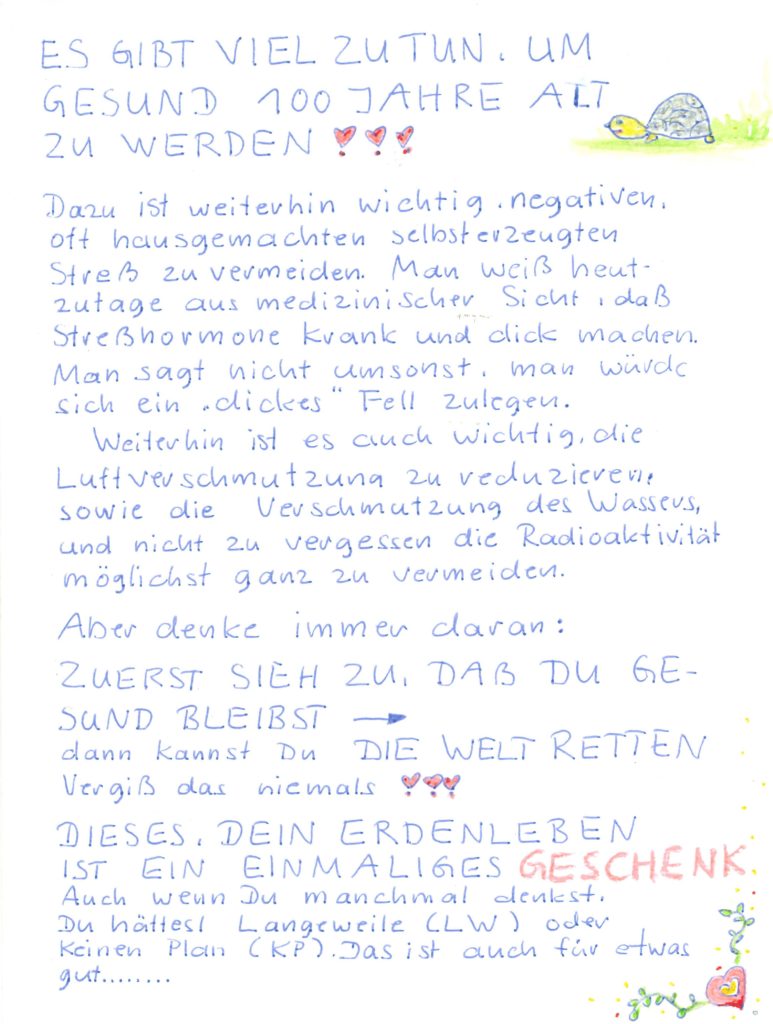 ES GIBT VIEL ZU TUN, UM
GESUND 100 JAHRE ALT
ZU WERDEN !!!
Dazu ist weiterhin wichtig, negativen,
oft hausgemachten selbsterzeugten
Streß zu vermeiden. Man weiß heut-
zutage aus medizinischer Sicht, daß
Streßhormone krank und dick machen.
Man sagt nicht umsonst, man würde
sich ein „dickes“ Fell zulegen.
Weiterhin ist es auch wichtig, die
Luftverschmutzung zu reduzieren,
sowie die Verschmutzung des Wassers,
und nicht zu vergessen die Radioaktivität
möglichst ganz zu vermeiden.
Aber denke immer daran:
ZUERST SIEH ZU, DAß DU GE-
SUND BLEIBST →
dann kannst Du DIE WELT RETTEN
Vergiß das niemals !!!
DIESES, DEIN ERDENLEBEN
IST EIN EINMALIGES GESCHENK
Auch wenn Du manchmal denkst,
Du hättest Langeweile (LW) oder
keinen Plan (KP). Das ist auch für etwas
gut........